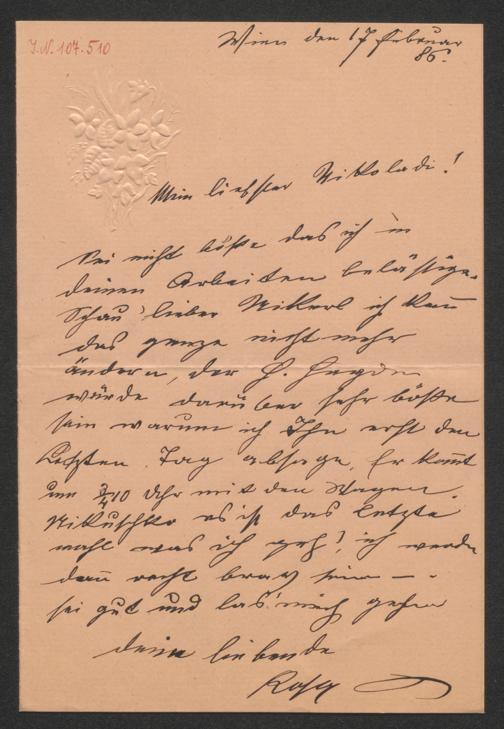 J.N. 107.510
Wien den 17 Februar
86.
Mein liebster Nikoladi!
Sei nicht böße das ich in
deinen Arbeiten belästige.
Schau lieber Nikerl ich kan̄
das ganze nicht mehr
ändern, der H.
würde darüber sehr böße
sein warum ich Ihn erst den
Letzten Tag absage. Er kom̄t
um ¾10 Uhr mit den Wagen.
Nikuschko es ist das letzte
mahl was ich geh! ich werde
dan̄ recht brav sein —
sei gut und las mich gehen
deine liebende
Rosa